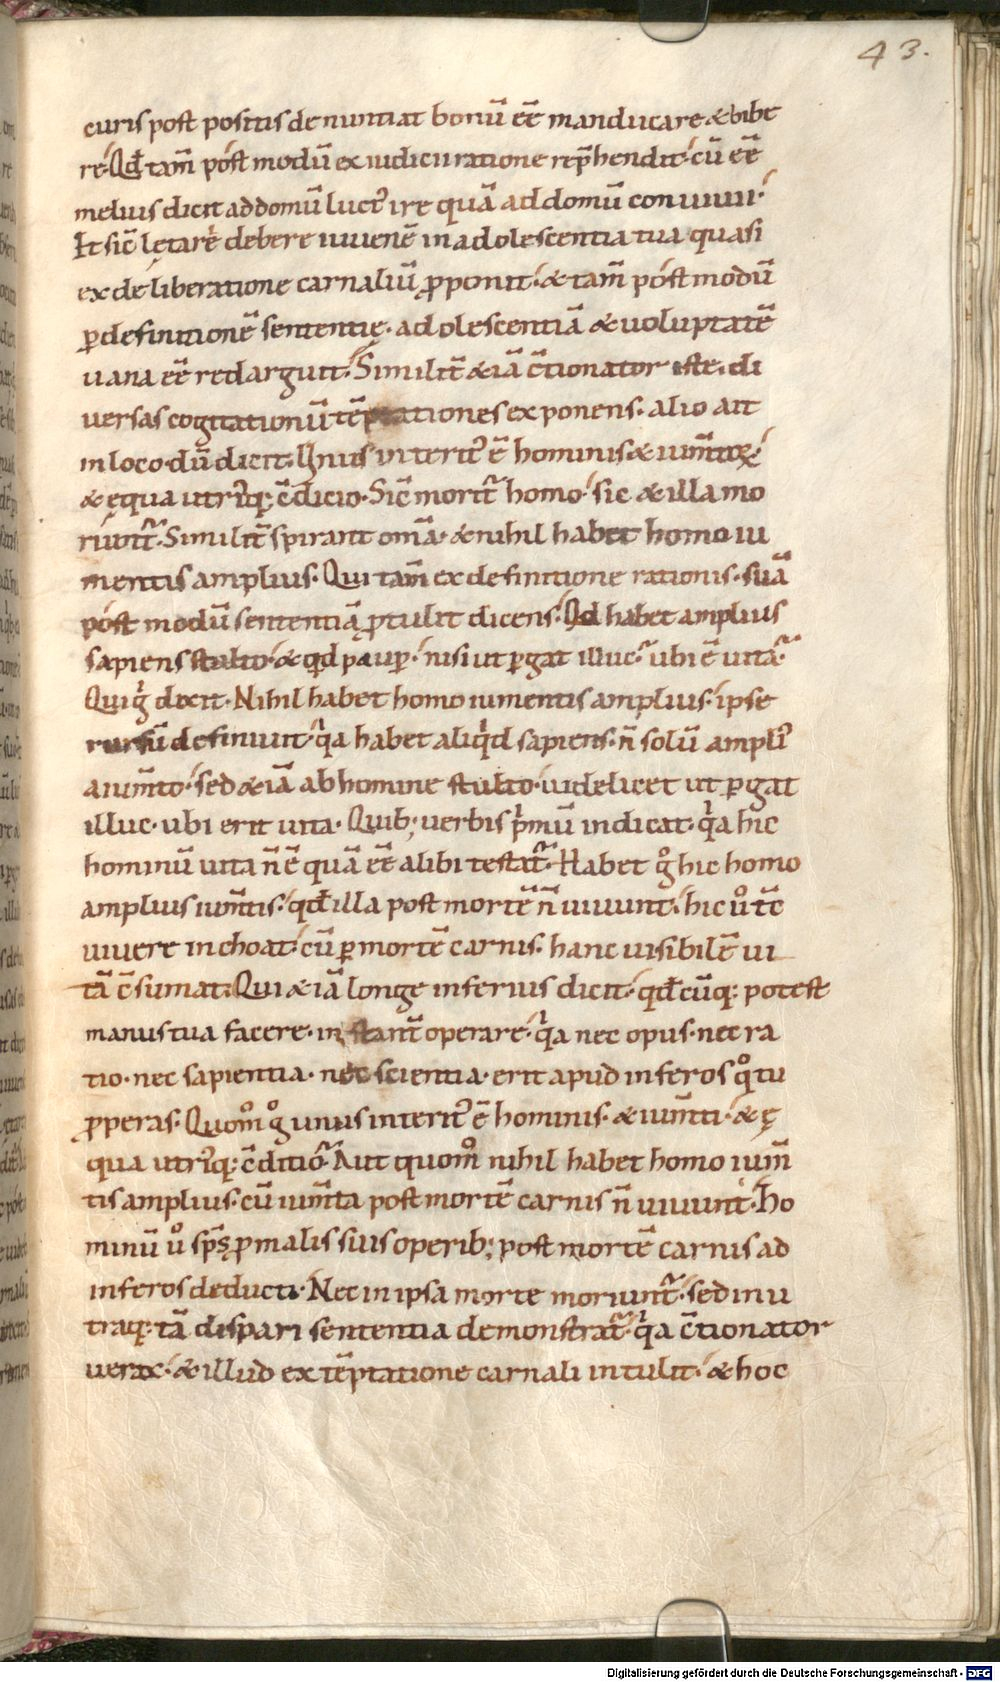 43.
curis post positis denuntiat bonū eē manducare & bibe
re· Qđ tam̄ post modū ex iudicii ratione rep̄hendit· cū eē
melius dicit ad domū luct᷒ ire quā ad domū conuiuii·
Et sic̄ lętare debere iuuenē in adolescentia tua quasi
ex deliberatione carnaliū ꝓponit· & tam̄ post modū
ꝑ definitionē sententię· adolescentiā & uoluptatē
uana eē redarguit· Similit̄ & iā c̄tionator iste· di
uersas cogitationū tēptationes exponens· alio ait
in loco· dū dicit· Unus interit᷒ ē hominis & ium̄toꝝ·
& ęqua utriq; c̄dicio· Sic̄ morit᷑ homo· sic & illa mo
riunt᷑· Similit̄ spirant om̄a· & nihil habet homo iu
mentis amplius· Qui tam̄ ex definitione rationis· suā
post modū sententiā ꝓtulit dicens· Qd habet amplius
sapiens stulto· & qd pauꝑ· nisi ut ꝑgat illuc· ubi ē uita·
Qui gͦ dicit· Nihil habet homo iumentis amplius· ipse
rursū definiuit· qͥa habet aliqͥd sapiens· n̄ solū ampli᷒
a ium̄to· sed & iā ab homine stulto· uidelicet ut ꝑgat
illuc· ubi erit uita· Quib; uerbis pͥmū indicat· qͥa hic
hominū uita n̄ ē quā eē alibi testat᷑· Habet gͦ hic homo
amplius ium̄tis· qđ illa post mortē n̄ uiuunt· hic uͦ tc̄
uiuere inchoat· cū ꝑ mortē carnis· hanc uisibilē ui
tā c̄sumat· Qui & iā longe inferius dicit· qđ cūq; potest
manus tua facere· instant̄ operare· qͥa nec opus· nec ra
tio· nec sapientia· nec scientia· erit apud inferos qͦ tu
ꝓperas· Quom̊ gͦ unus interit᷒ ē hominis· & ium̄ti· & ę
qua utriq; c̄ditio· Aut quom̊ nihil habet homo ium̄
tis amplius· cū ium̄ta post mortē carnis n̄ uiuunt· Ho
minū uͦ sp̄s ꝓ malis suis operib; post mortē carnis ad
inferos deducti· Nec in ipsa morte moriunt᷑· sed in u
traq; tā dispari sententia demonstrat᷑· qͥa c̄tionator
uerax· & illud ex tēptatione carnali intulit· & hoc
Digitalisierung gefördert durch die Deutsche Forschungsgemeinschaft - DFG